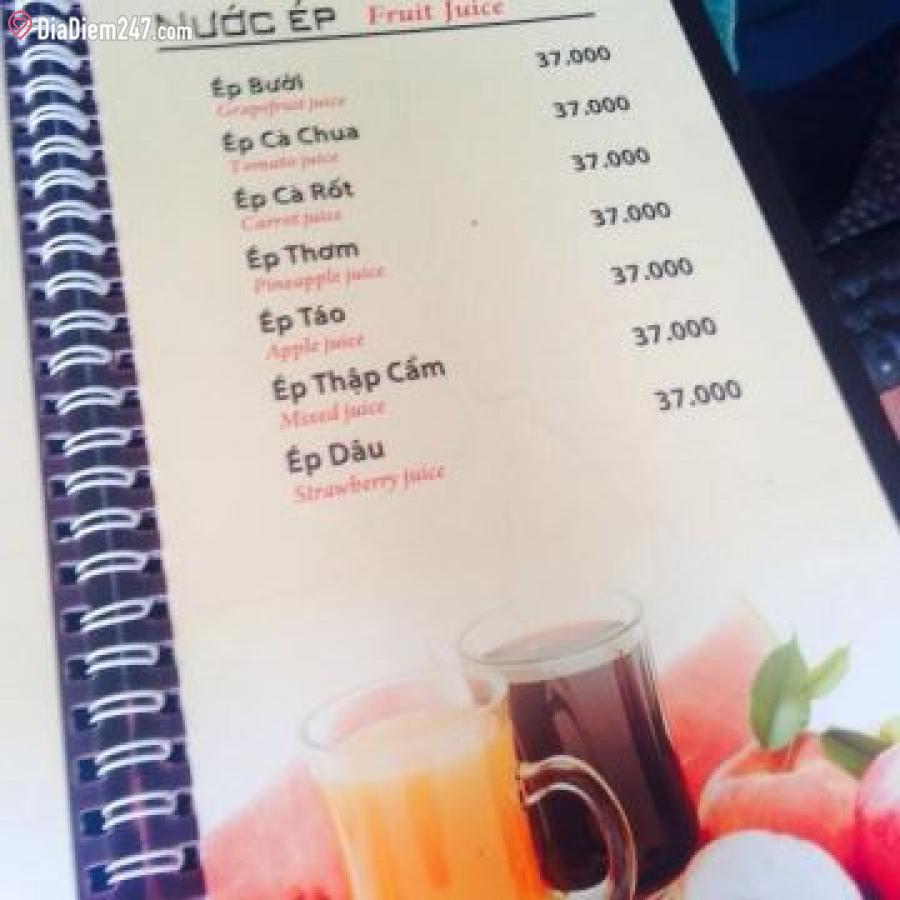 DiaDiem247.com
NƯỚC ÉP Fruit Juice
Ép Bưởi 37.000
Grapefruit juice
Ép Cà Chua 37.000
Tomato juice
Ép Cà Rốt 37.000
Carrot juice
Ép Thơm 37.000
Pineapple juice
Ép Táo 37.000
Apple juice
Ép Thập Cẩm 37.000
Mixed juice
Ép Dâu 37.000
Strawberry juice